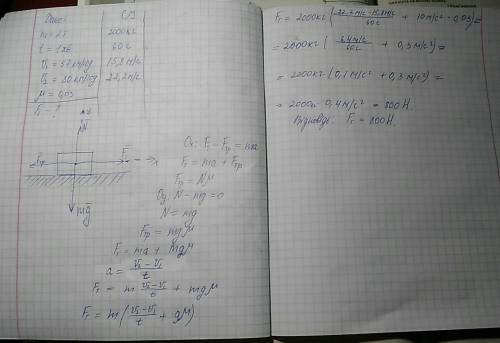 Дано:
СІ
m = 2т
2000кг
t = 1хв
60с
V₁ = 57км/год
15,8м/с
V₂ = 80км/год
22,2м/с
μ = 0,03
Fт - ?
N
Fтр
F
x
mg
Ox: Fт - Fтр = ma
Fт = ma + Fтр
Fтр = Nμ
Oy: N - mg = 0
N = mg
Fтр = mgμ
Fт = ma + mgμ
a = (V₂ - V₁)/t
Fт = m (V₂ - V₁)/t + mgμ
Fт = m((V₂ - V₁)/t + gμ)
Fт = 2000кг((22,2м/с - 15,8м/с)/60с + 10м/с² · 0,03) =
= 2000кг(6,4м/с/60с + 0,3м/с²) =
= 2000кг(0,1м/с² + 0,3м/с²) =
= 2000кг · 0,4м/с² = 800Н.
Відповідь: Fт = 800Н.